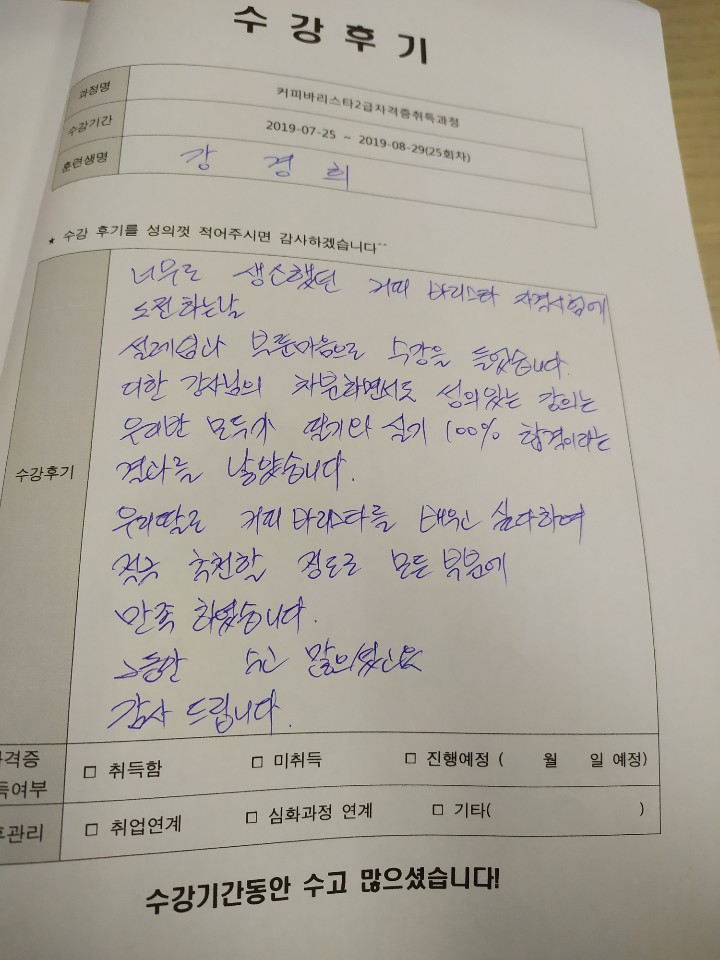 수강후기
과정명 커피바리스타2급자격증취득과정
수강기간 2019-07-25 ~ 2019-08-29(25회차)
훈련생명 강 경 희
★ 수강 후기를 성의껏 적어주시면 감사하겠습니다^^
수강후기
너무도 생소했던 커피 바리스타 자격시험에
도전하는날
설레임과 부푼마음으로 수강을 들었습니다.
또한 강사님의 차분하면서도 성의있는 강의는
우리반 모두가 필기와 실기 100% 합격이라는
결과를 낳았습니다.
우리딸도 커피 바리스타를 배우고 싶다하여
적극 추천할 정도로 모든 부분에
만족 하였습니다.
그동안 수고 많으셨고요
감사 드립니다.
격증 □ 취득함 □ 미취득 □ 진행예정 ( 월 일 예정)
득여부
관리 □ 취업연계 □ 심화과정 연계 □ 기타( )
수강기간동안 수고 많으셨습니다!